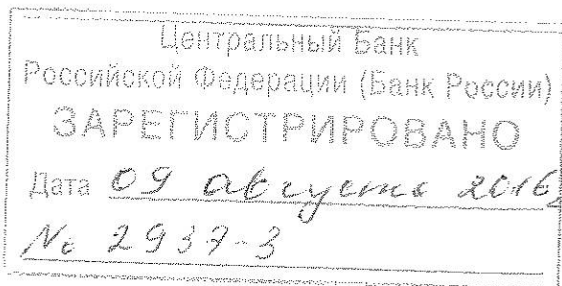 Центральный Банк
Российской Федерации (Банк России)
ЗАРЕГИСТРИРОВАНО
Дата 09 августа 2016
№ 2937-3